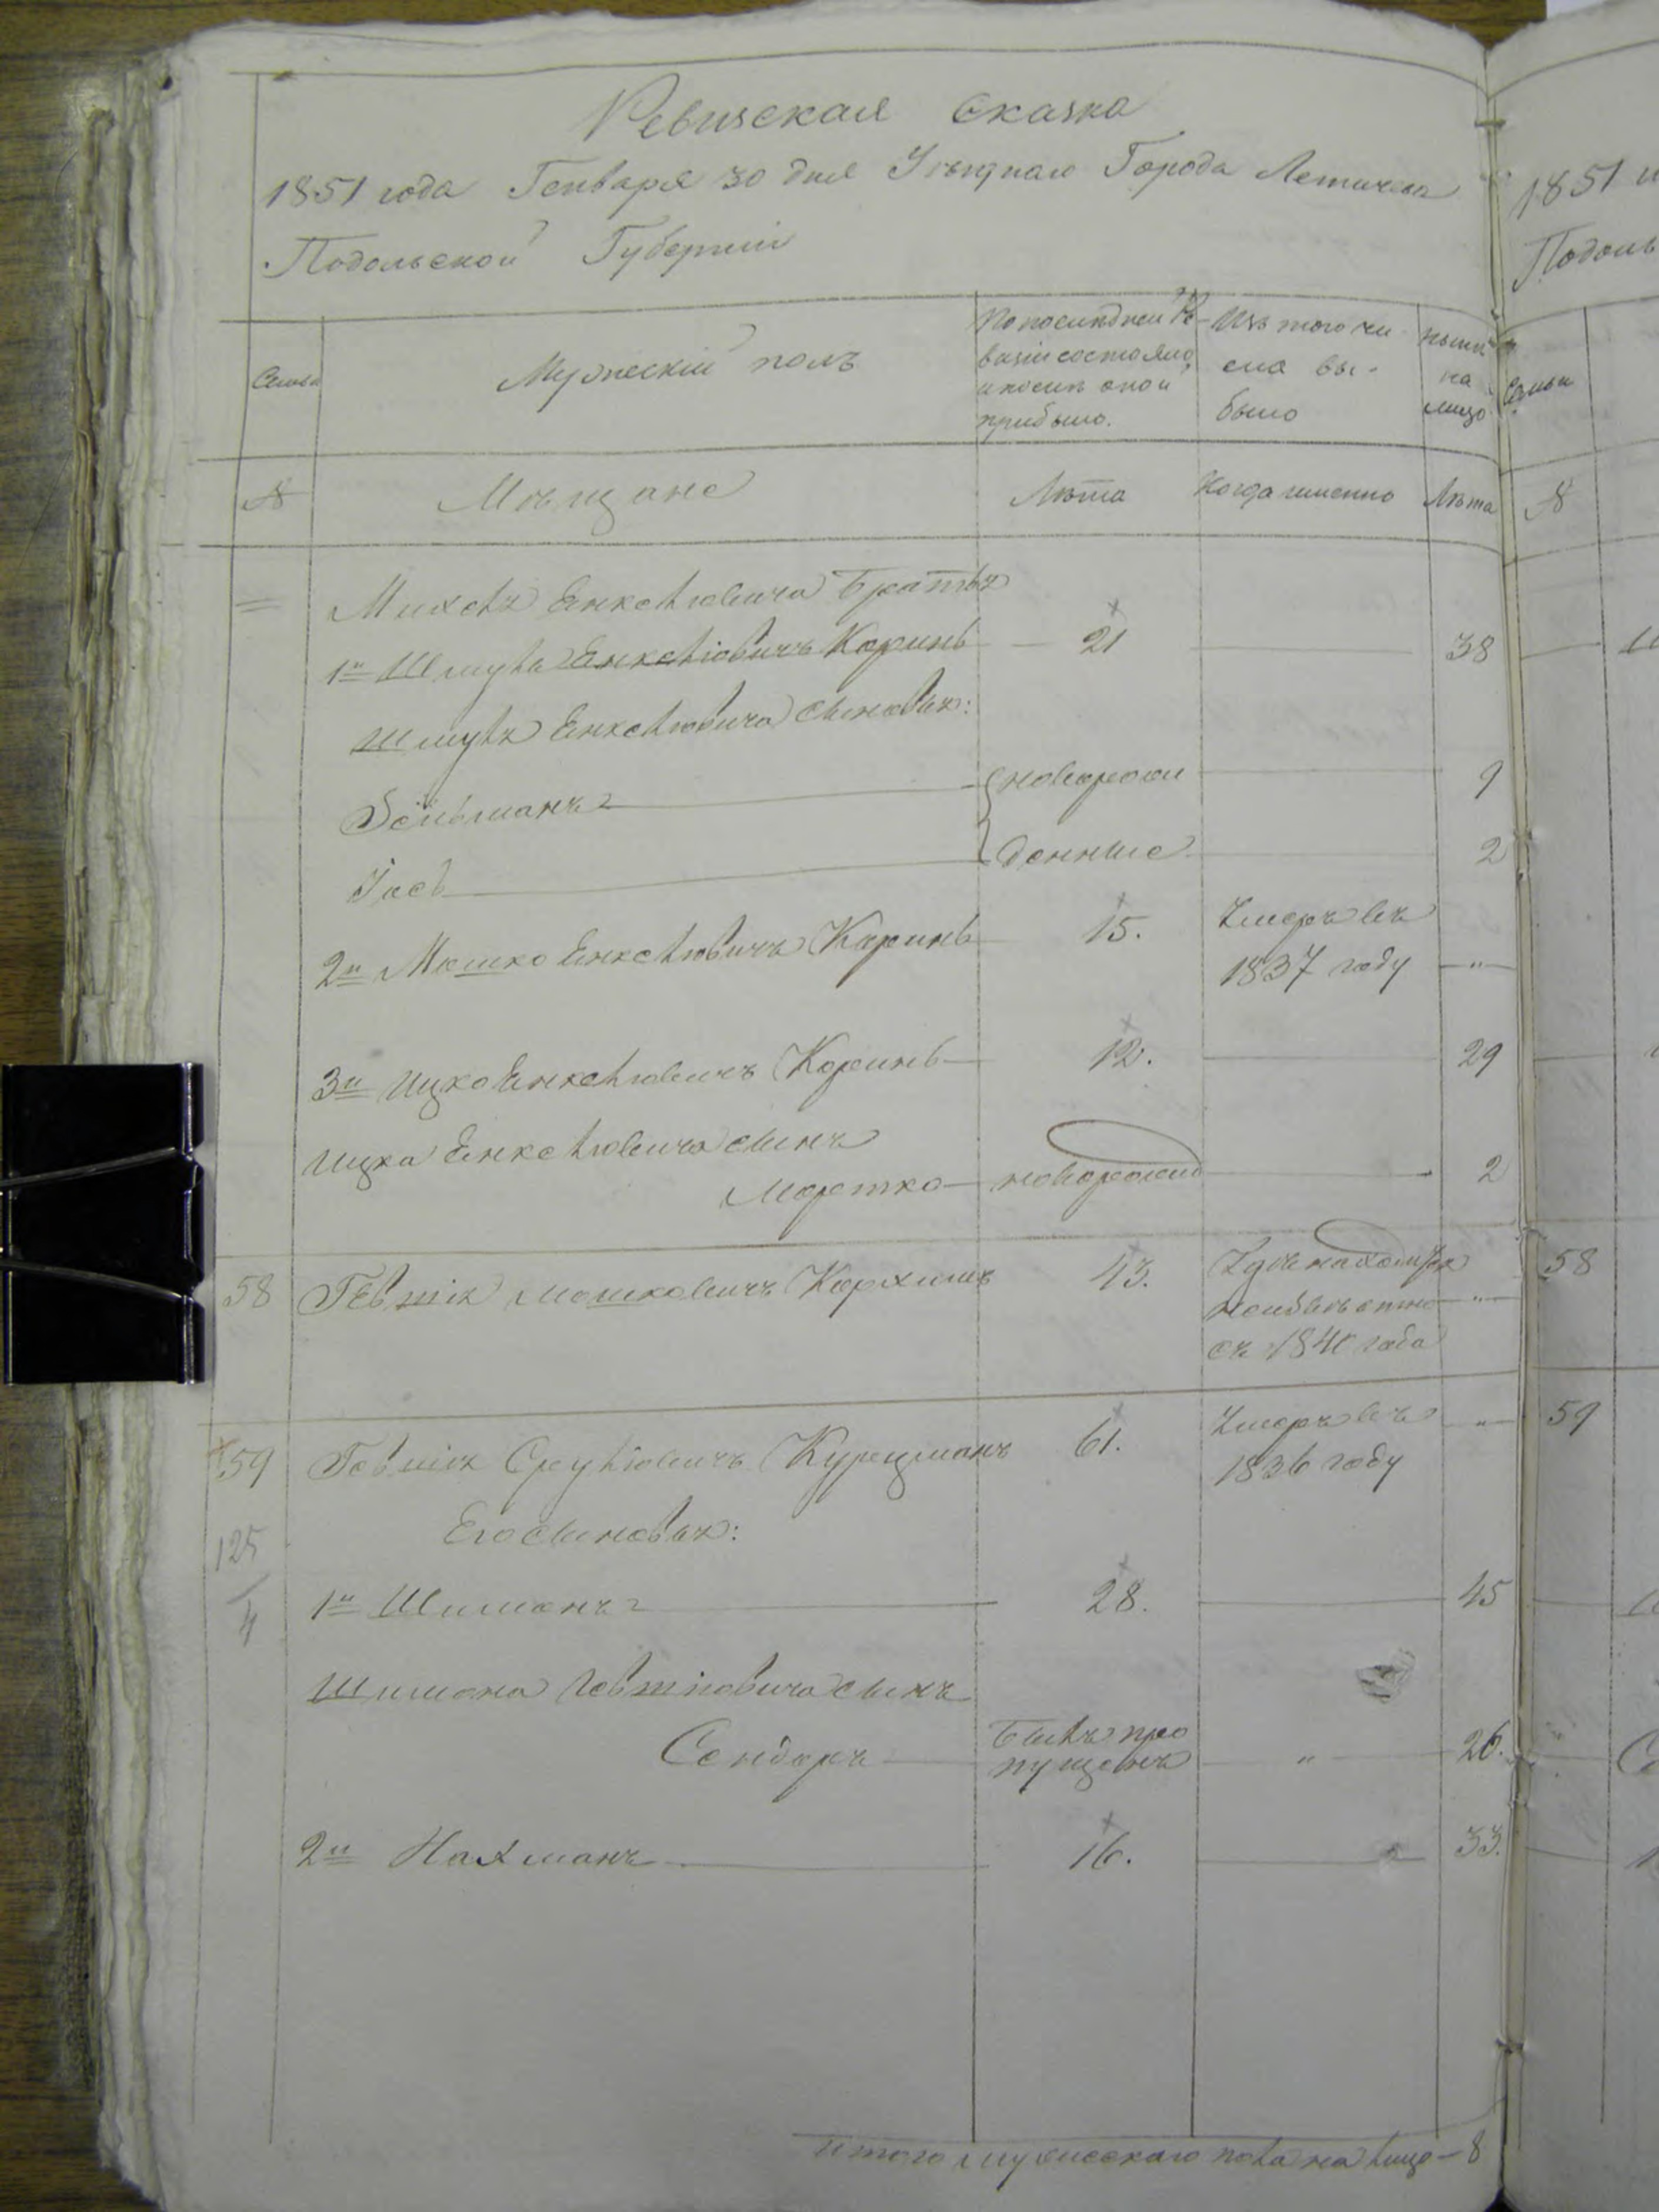 Ревизская Сказка
1851 года Генваря 30 дня Уѣзднаго Города Летичева
Подольской Губерніи
Семьи
Мужескій полъ
По послѣдней Ре-
визіи состояло
и послѣ оной
прибыло.
Изъ того чи-
сла вы-
было
нынѣ
на
лицо
№
Мѣщане
Лѣта
Когда именно
Лѣта
Енкелювича Братья
1й Шмуль Енкелювичъ Коринь 21 38
Шмуля Енкелювича сыновья:
Зельманъ 9
новорож
денные
Іось 2
2й Мошко Енкелювичъ Коринь 15. Умеръ въ
1837 году „
3й Ицко Енкелювичъ Коринь 12. 29
Ицка Енкелювича сынъ
Мортко новорож 2
58 Мошковичъ 43. Гдѣ находится
неизвѣстно „
съ 1840 года
59 Срулювичъ Курцманъ 61. Умеръ въ „
1836 году
Его сыновья:
125
4
1й Шимонъ 28. 45
Шимона сынъ
Сендеръ Былъ про
пущенъ „ 26.
2й Нахманъ 16. 33.
Итого мужескаго пола на лицо – 8
1851
Подоль
Семьи
№
58
59